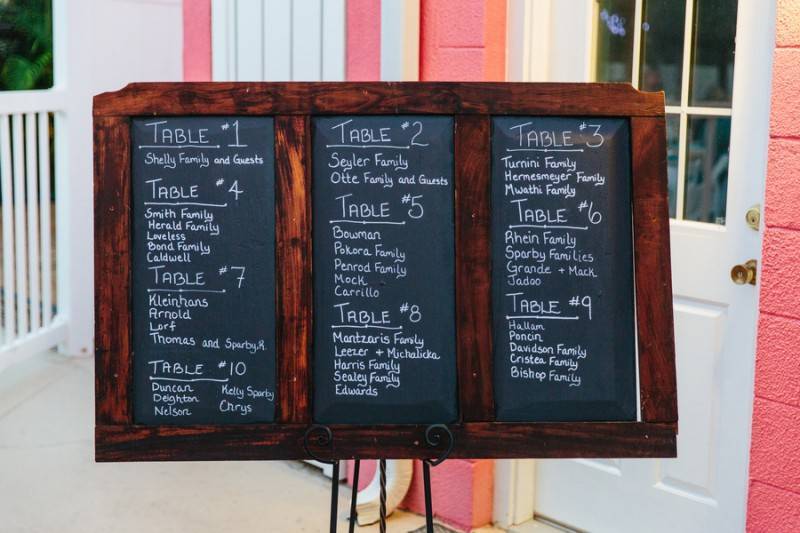 TABLE #1
Shelly Family and Guests
TABLE #4
Smith Family
Herald Family
Loveless
Bond Family
Caldwell
TABLE #7
Kleinhans
Arnold
Lorf
Thomas and Sparby, R.
TABLE #10
Duncan Kelly Sparby
Deighton Chrys
Nelson
TABLE #2
Seyler Family
Otte Family and Guests
TABLE #5
Bowman
Pokora Family
Penrod Family
Mock
Carrillo
TABLE #8
Mantzaris Family
Leezer + Michalicka
Harris Family
Sealey Family
Edwards
TABLE #3
Turnini Family
Hermesmeyer Family
Mwathi Family
TABLE #6
Rhein Family
Sparby Families
Grande + Mack
Jadoo
TABLE #9
Hallam
Poncin
Davidson Family
Cristea Family
Bishop Family